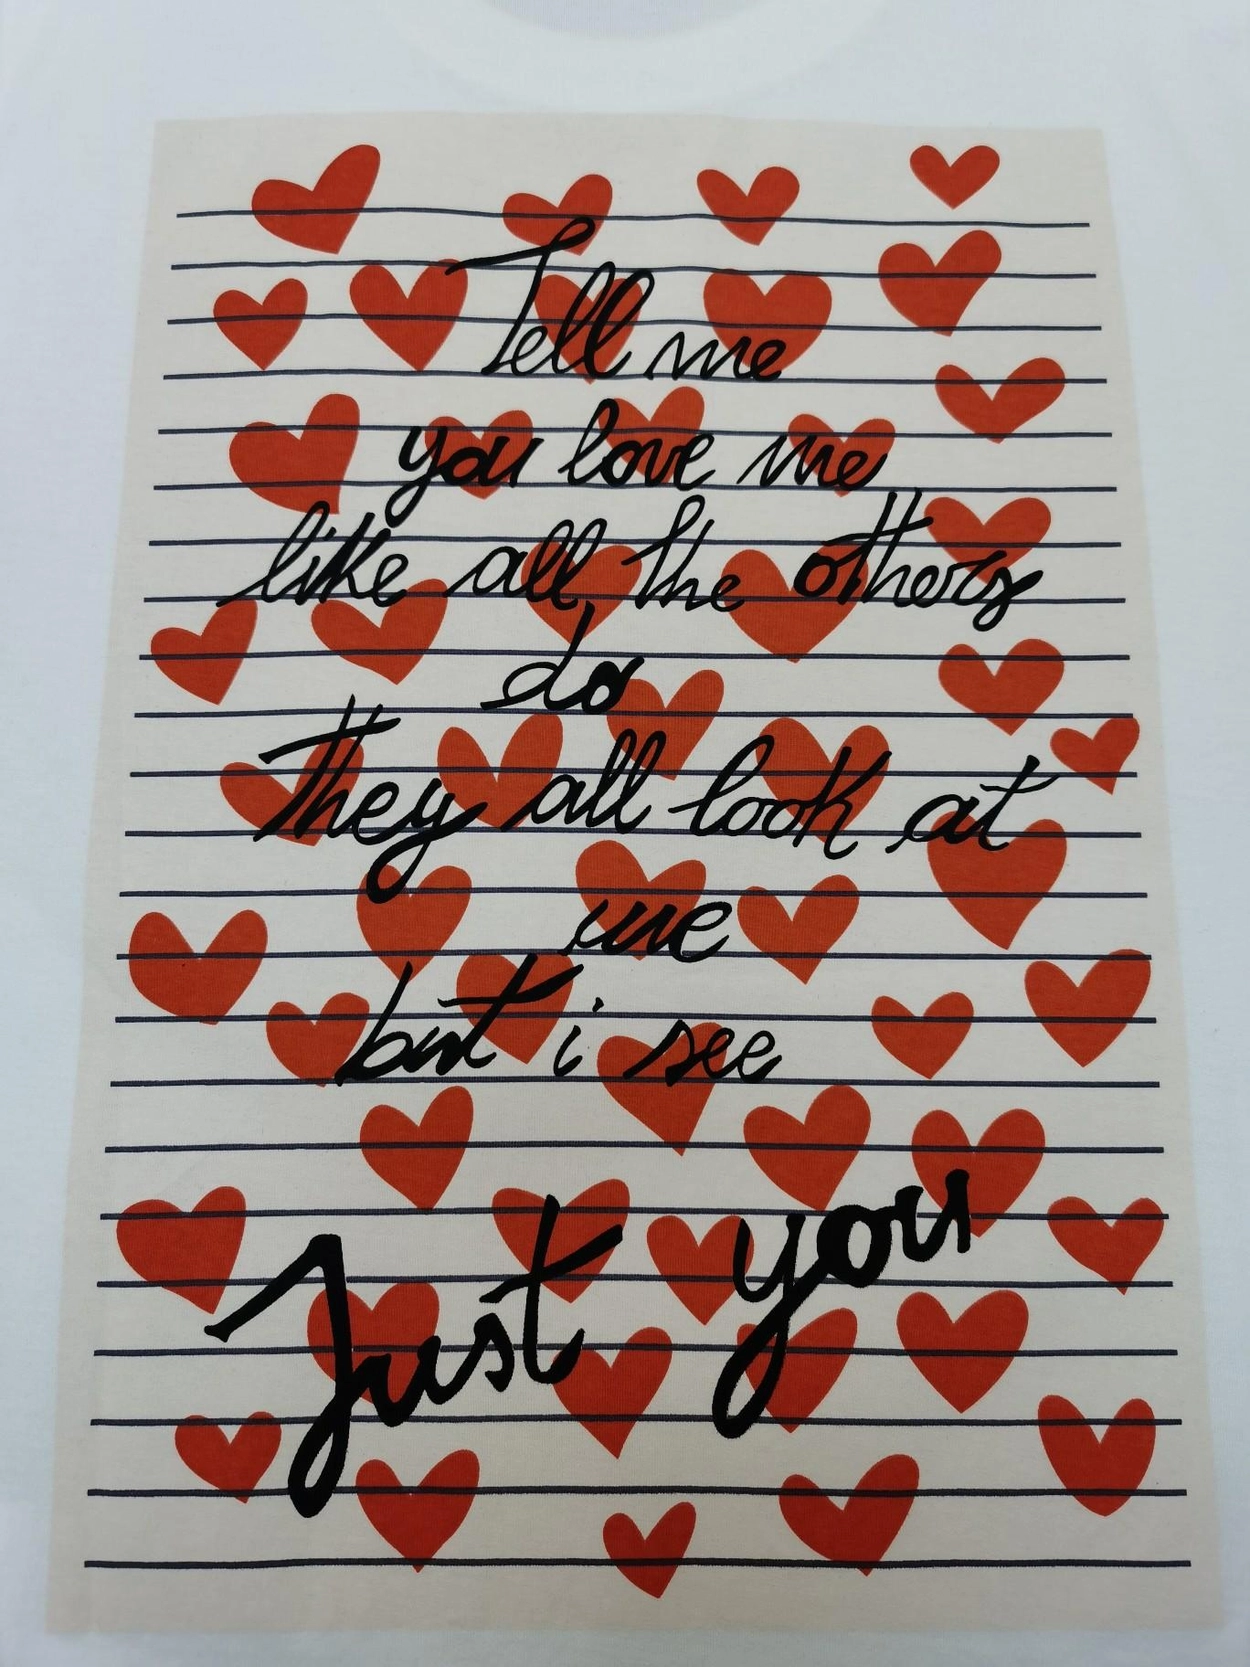 Tell me
you love me
like all the others
do
They all look at
me
but i see
Just you